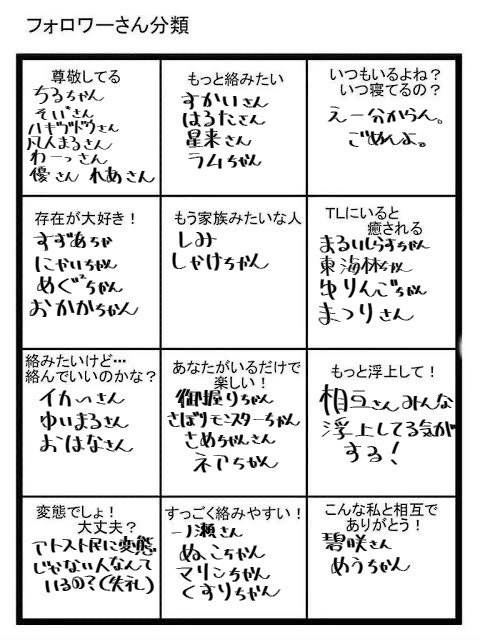 フォロワーさん分類
尊敬してる
ちるちゃん
そいさん
ハギヴドウさん
凡人まるさん
わーっさん
優さん れあさん
もっと絡みたい
すかいさん
はるたさん
星来さん
ラムちゃん
いつもいるよね?
いつ寝てるの?
えー分からん。
ごめんよ。
存在が大好き!
すずあちゃ
にゃいちゃん
めぐ²ちゃん
おかかちゃん
もう家族みたいな人
しみ
しゃけちゃん
TLにいると
癒される
まるいしらすちゃん
東海林ちゃん
ゆりんごちゃん
まつりさん
絡みたいけど…
絡んでいいのかな?
イカいさん
ゆいまるさん
おはなさん
あなたがいるだけで
楽しい!
御握りちゃん
さぼりモンスターちゃん
さめちゃんさん
ネアちゃん
もっと浮上して!
相互さんみんな
浮上してる気が
する!
変態でしょ!
大丈夫?
アトスト民に変態
じゃない人なんて
いるの?(失礼)
すっごく絡みやすい!
一ノ瀬さん
ぬこちゃん
マリンちゃん
くすりちゃん
こんな私と相互で
ありがとう!
碧咲さん
めうちゃん